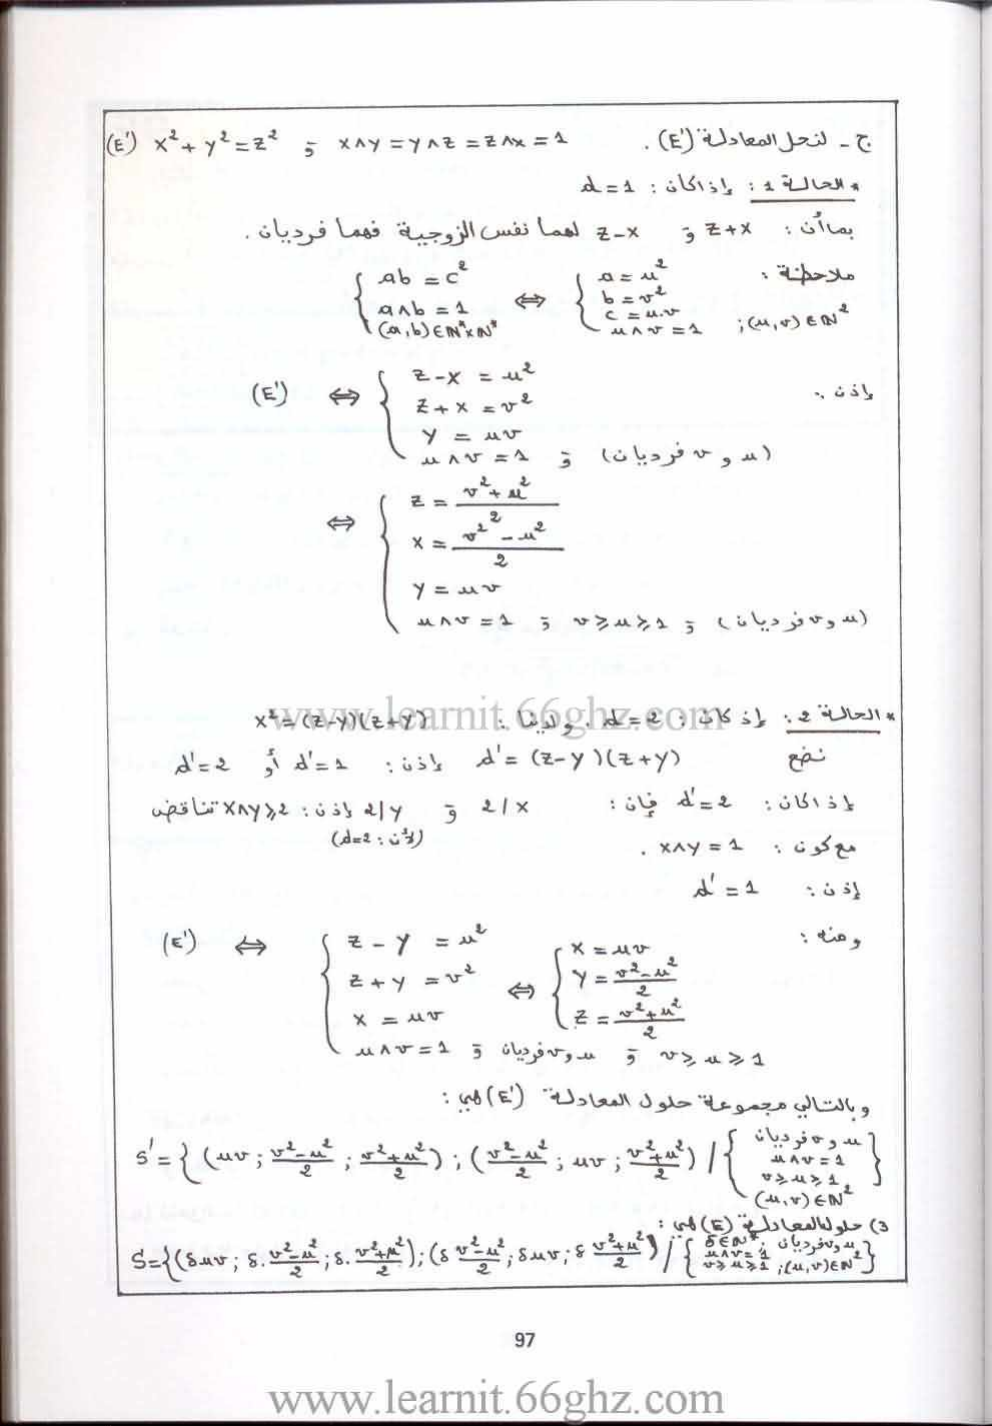 ج - لنحل المعادلة (E'). (E') x² + y² = z² و x∧y = y∧z = z∧x = 1
* الحالة 1 : إذا كان : d = 1
بما أن : z+x و z-x لهما نفس الزوجية فهما فرديان .
ملاحظة : { ab = c² ; a∧b = 1 ; (a,b) ∈ N*×N* ⇔ { a = u² ; b = v² ; c = u.v ; u∧v = 1 ; (u,v) ∈ N²
إذن : (E') ⇔ { z-x = u²
z+x = v²
y = uv
u∧v = 1 و (u و v فرديان)
⇔ { z = (v²+u²)/2
x = (v²-u²)/2
y = uv
u∧v = 1 و v ⩾ u ⩾ 1 و (u و v فرديان)
www.learnit.66ghz.com
* الحالة 2 : إذ كان : d = 2 . ولدينا : x² = (z-y)(z+y)
نضع d' = (z-y)(z+y) إذن : d' = 1 أو d' = 2
إذا كان : d' = 2 فإن : 2/x و 2/y إذن : x∧y ⩾ 2 تناقض
(لأن : d=2)
مع كون : x∧y = 1 .
إذن : d' = 1
ومنه : (E') ⇔ { z - y = u² ⇔ { x = uv
z + y = v² y = (v²-u²)/2
x = uv z = (v²+u²)/2
u∧v = 1 و u و v فرديان و v ⩾ u ⩾ 1
وبالتالي مجموعة حلول المعادلة (E') هي :
S' = { (uv ; (v²-u²)/2 ; (v²+u²)/2) ; ((v²-u²)/2 ; uv ; (v²+u²)/2) / { u و v فرديان
u∧v = 1
v ⩾ u ⩾ 1
(u,v) ∈ N² }
3) حلول المعادلة (E) هي :
S = { (δuv ; δ.(v²-u²)/2 ; δ.(v²+u²)/2) ; (δ (v²-u²)/2 ; δuv ; δ (v²+u²)/2) / { δ ∈ N* ; u و v فرديان
u∧v = 1
v ⩾ u ⩾ 1 ; (u,v) ∈ N² }
97
www.learnit.66ghz.com